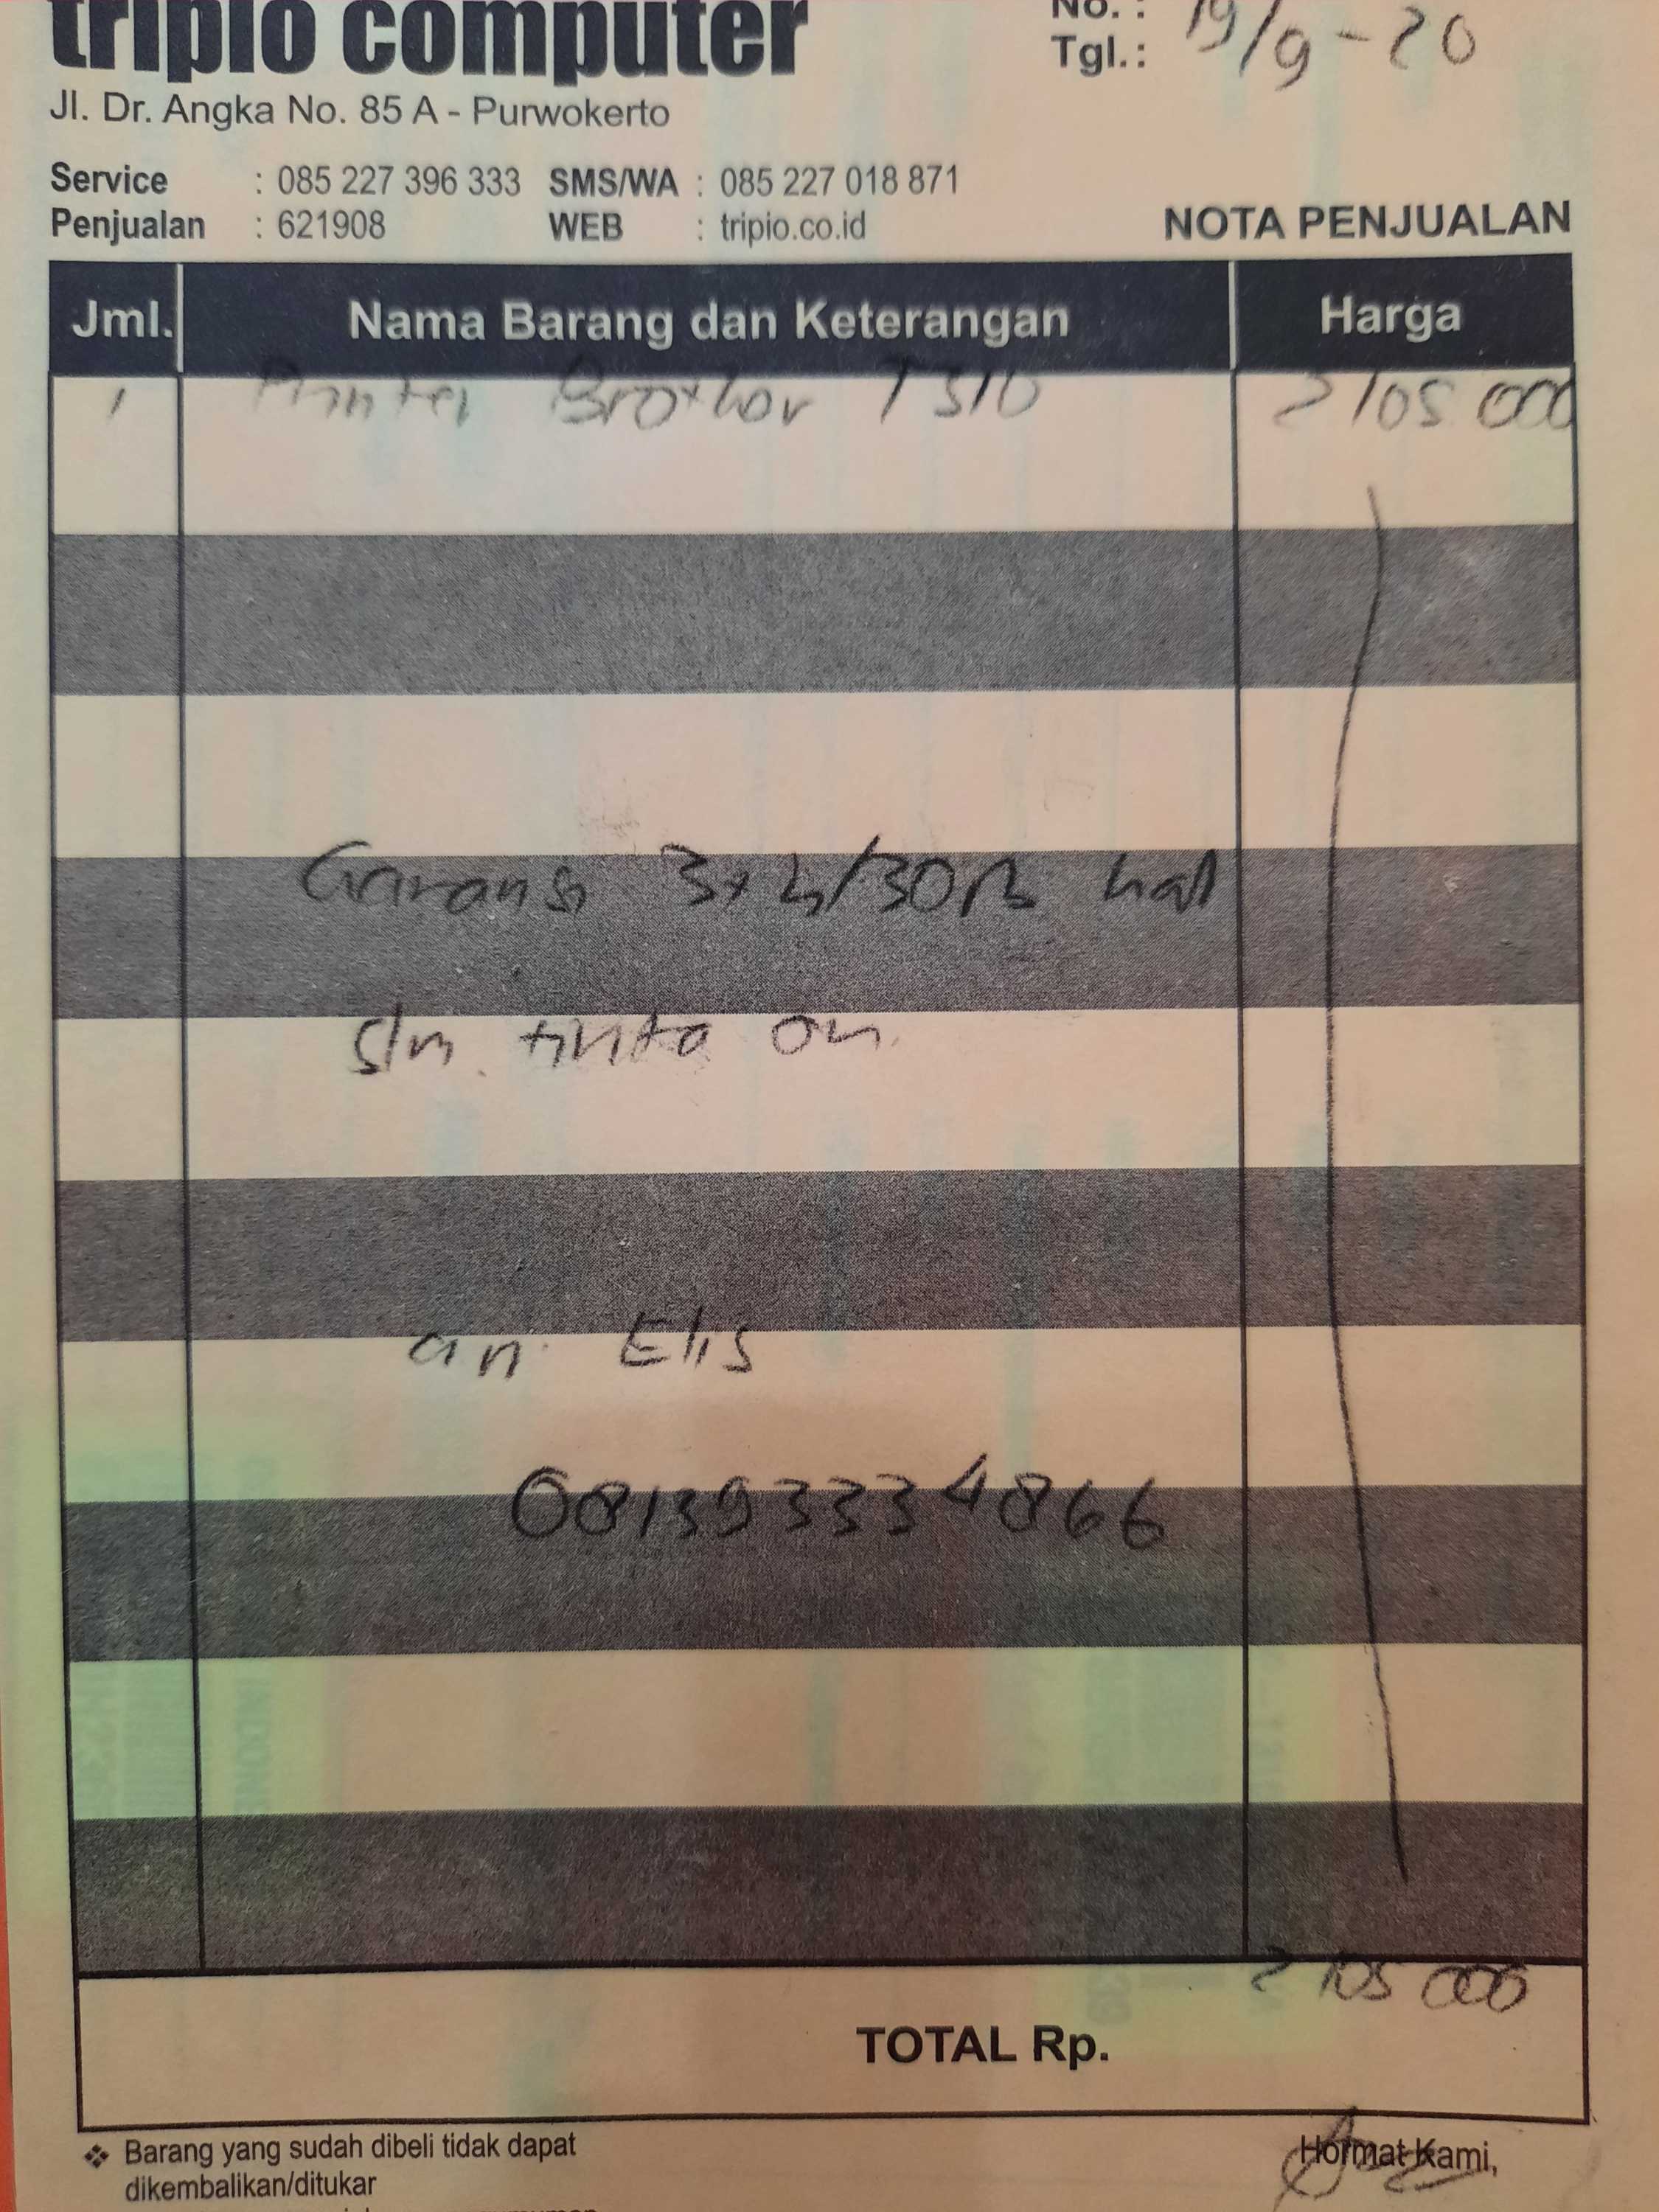 tripio computer
No. :
Tgl.: 19/9-20
Jl. Dr. Angka No. 85 A - Purwokerto
Service : 085 227 396 333 SMS/WA : 085 227 018 871
Penjualan : 621908 WEB : tripio.co.id
NOTA PENJUALAN
Jml. Nama Barang dan Keterangan Harga
1 Printer Brother T310 2105 000
Garansi 3
tinta
an Elis
081393334866
2105 000
TOTAL Rp.
❖ Barang yang sudah dibeli tidak dapat
dikembalikan/ditukar
Hormat Kami,